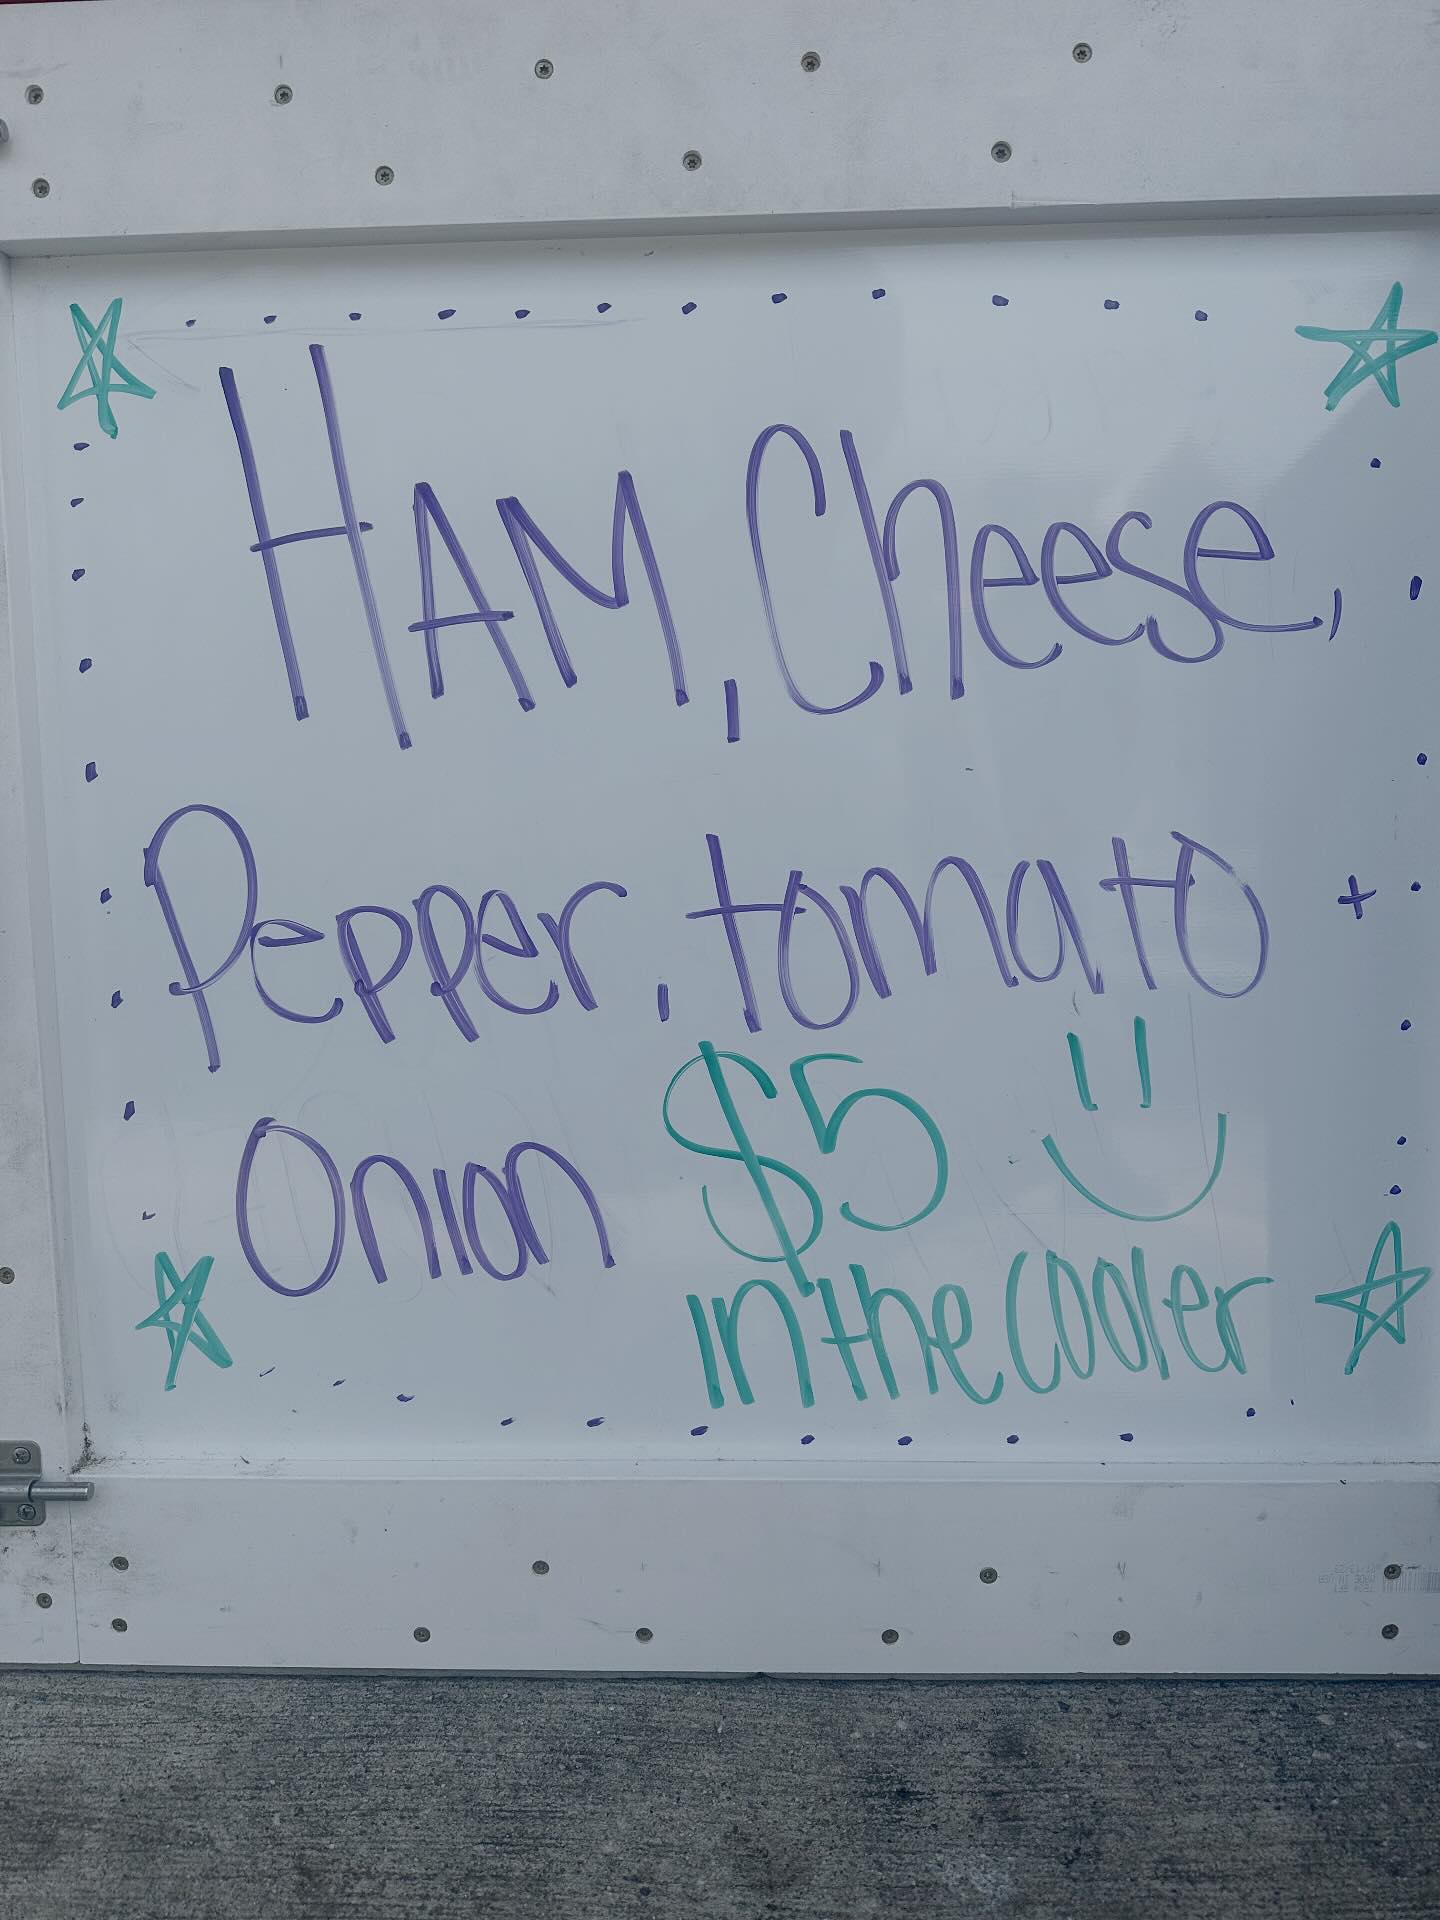 HAM, Cheese,
Pepper, tomato +
Onion $5
in the cooler